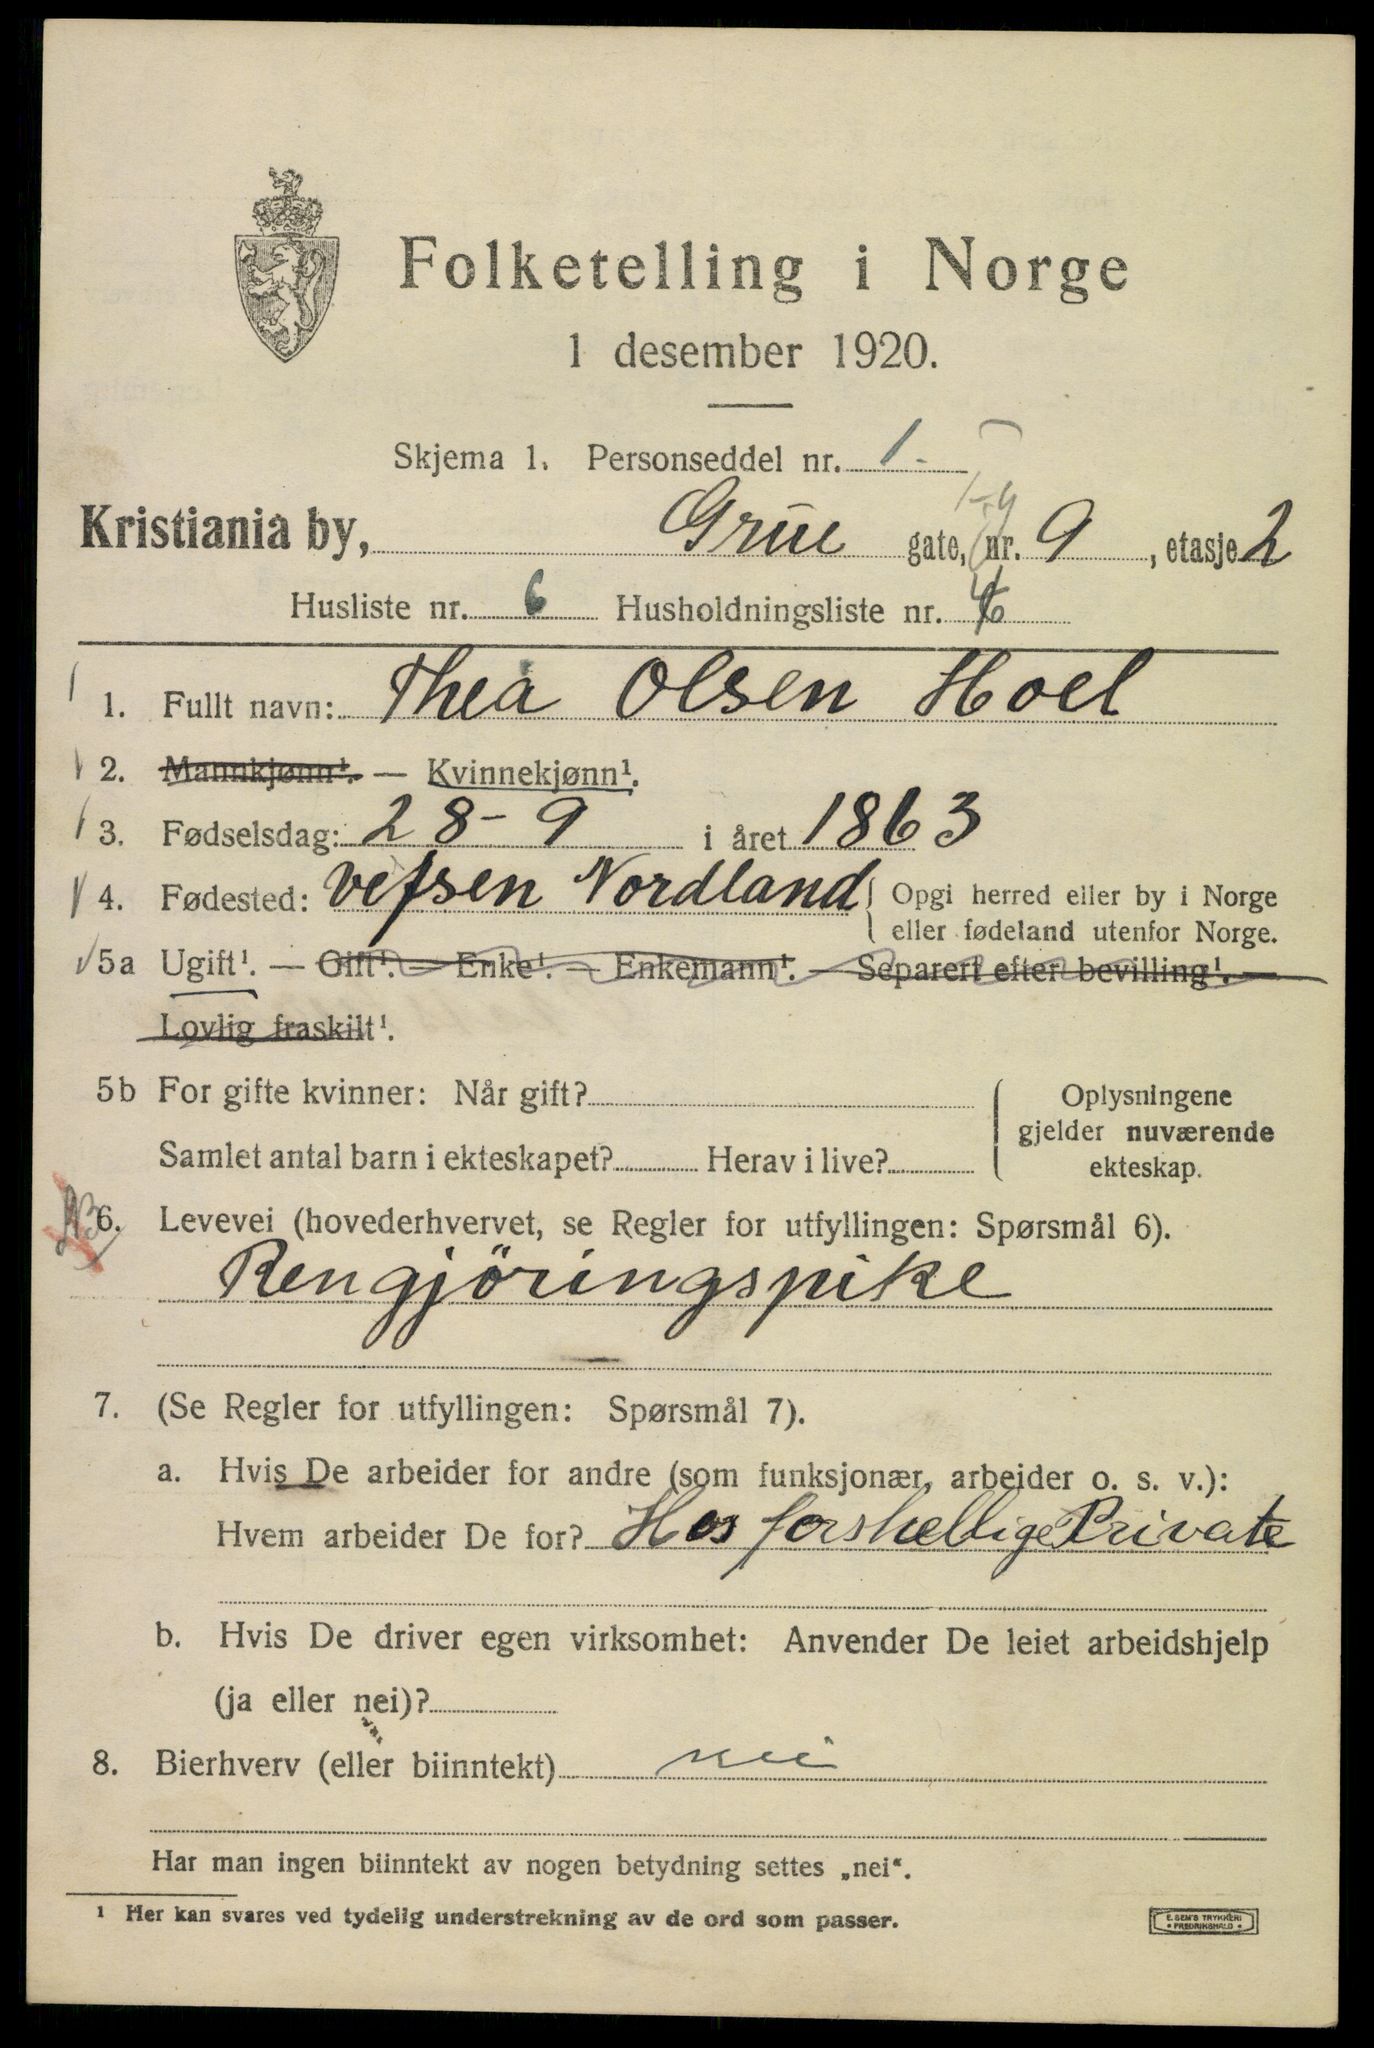 Folketelling i Norge
1 desember 1920.
Skjema 1. Personseddel nr. 1.
Kristiania by, Grüe gate, nr. 9, etasje 2
Husliste nr. 6 Husholdningsliste nr.
1. Fullt navn: Thea Olsen Hoel
2. Mannkjønn¹. — Kvinnekjønn¹.
3. Fødselsdag: 28-9 i året 1863
4. Fødested: Vefsen Nordland { Opgi herred eller by i Norge
eller fødeland utenfor Norge.
5a Ugift¹. — Gift¹. — Enke¹. — Enkemann¹. — Separert efter bevilling¹. —
Lovlig fraskilt¹.
5b For gifte kvinner: Når gift? { Oplysningene
gjelder nuværende
Samlet antal barn i ekteskapet? Herav i live? ekteskap.
6. Levevei (hovederhvervet, se Regler for utfyllingen: Spørsmål 6).
Rengjöringspike
7. (Se Regler for utfyllingen: Spørsmål 7).
a. Hvis De arbeider for andre (som funksjonær, arbeider o. s. v.):
Hvem arbeider De for? Hos forskellige Private
b. Hvis De driver egen virksomhet: Anvender De leiet arbeidshjelp
(ja eller nei)?
8. Bierhverv (eller biinntekt) nei
Har man ingen biinntekt av nogen betydning settes „nei“.
¹ Her kan svares ved tydelig understrekning av de ord som passer.
E. SEM'S TRYKKERI
• FREDRIKSHALD •